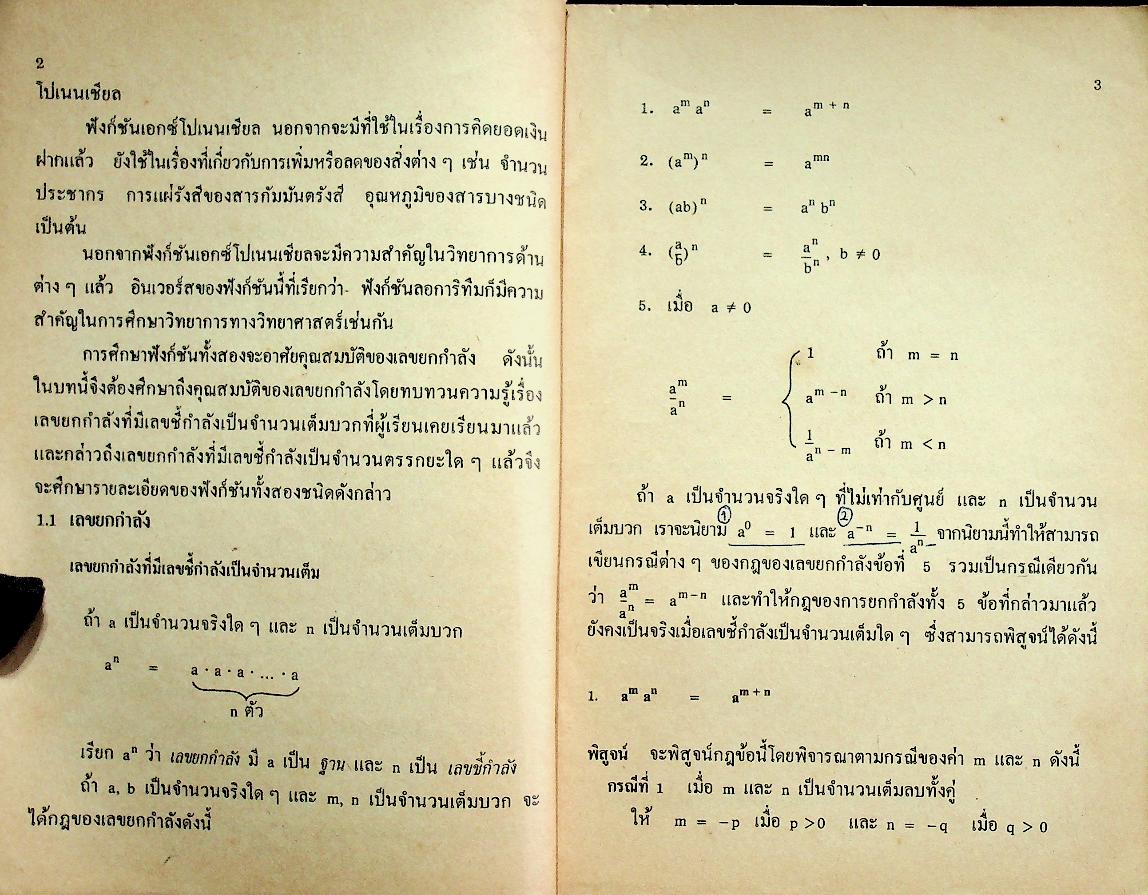 2
โปเนนเชียล
ฟังก์ชันเอกซ์โปเนนเชียล นอกจากจะมีที่ใช้ในเรื่องการคิดยอดเงิน
ฝากแล้ว ยังใช้ในเรื่องที่เกี่ยวกับการเพิ่มหรือลดของสิ่งต่าง ๆ เช่น จำนวน
ประชากร การแผ่รังสีของสารกัมมันตรังสี อุณหภูมิของสารบางชนิด
เป็นต้น
นอกจากฟังก์ชันเอกซ์โปเนนเชียลจะมีความสำคัญในวิทยาการด้าน
ต่าง ๆ แล้ว อินเวอร์สของฟังก์ชันนี้ที่เรียกว่า- ฟังก์ชันลอการิทึมก็มีความ
สำคัญในการศึกษาวิทยาการทางวิทยาศาสตร์เช่นกัน
การศึกษาฟังก์ชันทั้งสองจะอาศัยคุณสมบัติของเลขยกกำลัง ดังนั้น
ในบทนี้จึงต้องศึกษาถึงคุณสมบัติของเลขยกกำลังโดยทบทวนความรู้เรื่อง
เลขยกกำลังที่มีเลขชี้กำลังเป็นจำนวนเต็มบวกที่ผู้เรียนเคยเรียนมาแล้ว
และกล่าวถึงเลขยกกำลังที่มีเลขชี้กำลังเป็นจำนวนตรรกยะใด ๆ แล้วจึง
จะศึกษารายละเอียดของฟังก์ชันทั้งสองชนิดดังกล่าว
1.1 เลขยกกำลัง
เลขยกกำลังที่มีเลขชี้กำลังเป็นจำนวนเต็ม
ถ้า a เป็นจำนวนจริงใด ๆ และ n เป็นจำนวนเต็มบวก
aⁿ = a · a · a · ... · a
n ตัว
เรียก aⁿ ว่า เลขยกกำลัง มี a เป็น ฐาน และ n เป็น เลขชี้กำลัง
ถ้า a, b เป็นจำนวนจริงใด ๆ และ m, n เป็นจำนวนเต็มบวก จะ
ได้กฎของเลขยกกำลังดังนี้
3
1. aᵐ aⁿ = aᵐ ⁺ ⁿ
2. (aᵐ)ⁿ = aᵐⁿ
3. (ab)ⁿ = aⁿ bⁿ
4. (a/b)ⁿ = aⁿ/bⁿ, b ≠ 0
5. เมื่อ a ≠ 0
1 ถ้า m = n
aᵐ/aⁿ = aᵐ ⁻ ⁿ ถ้า m > n
1/aⁿ ⁻ ᵐ ถ้า m < n
ถ้า a เป็นจำนวนจริงใด ๆ ที่ไม่เท่ากับศูนย์ และ n เป็นจำนวน
① ②
เต็มบวก เราจะนิยาม a⁰ = 1 และ a⁻ⁿ = 1/aⁿ จากนิยามนี้ทำให้สามารถ
เขียนกรณีต่าง ๆ ของกฎของเลขยกกำลังข้อที่ 5 รวมเป็นกรณีเดียวกัน
ว่า aᵐ/aⁿ = aᵐ⁻ⁿ และทำให้กฎของการยกกำลังทั้ง 5 ข้อที่กล่าวมาแล้ว
ยังคงเป็นจริงเมื่อเลขชี้กำลังเป็นจำนวนเต็มใด ๆ ซึ่งสามารถพิสูจน์ได้ดังนี้
1. aᵐ aⁿ = aᵐ⁺ⁿ
พิสูจน์ จะพิสูจน์กฎข้อนี้โดยพิจารณาตามกรณีของค่า m และ n ดังนี้
กรณีที่ 1 เมื่อ m และ n เป็นจำนวนเต็มลบทั้งคู่
ให้ m = -p เมื่อ p > 0 และ n = -q เมื่อ q > 0